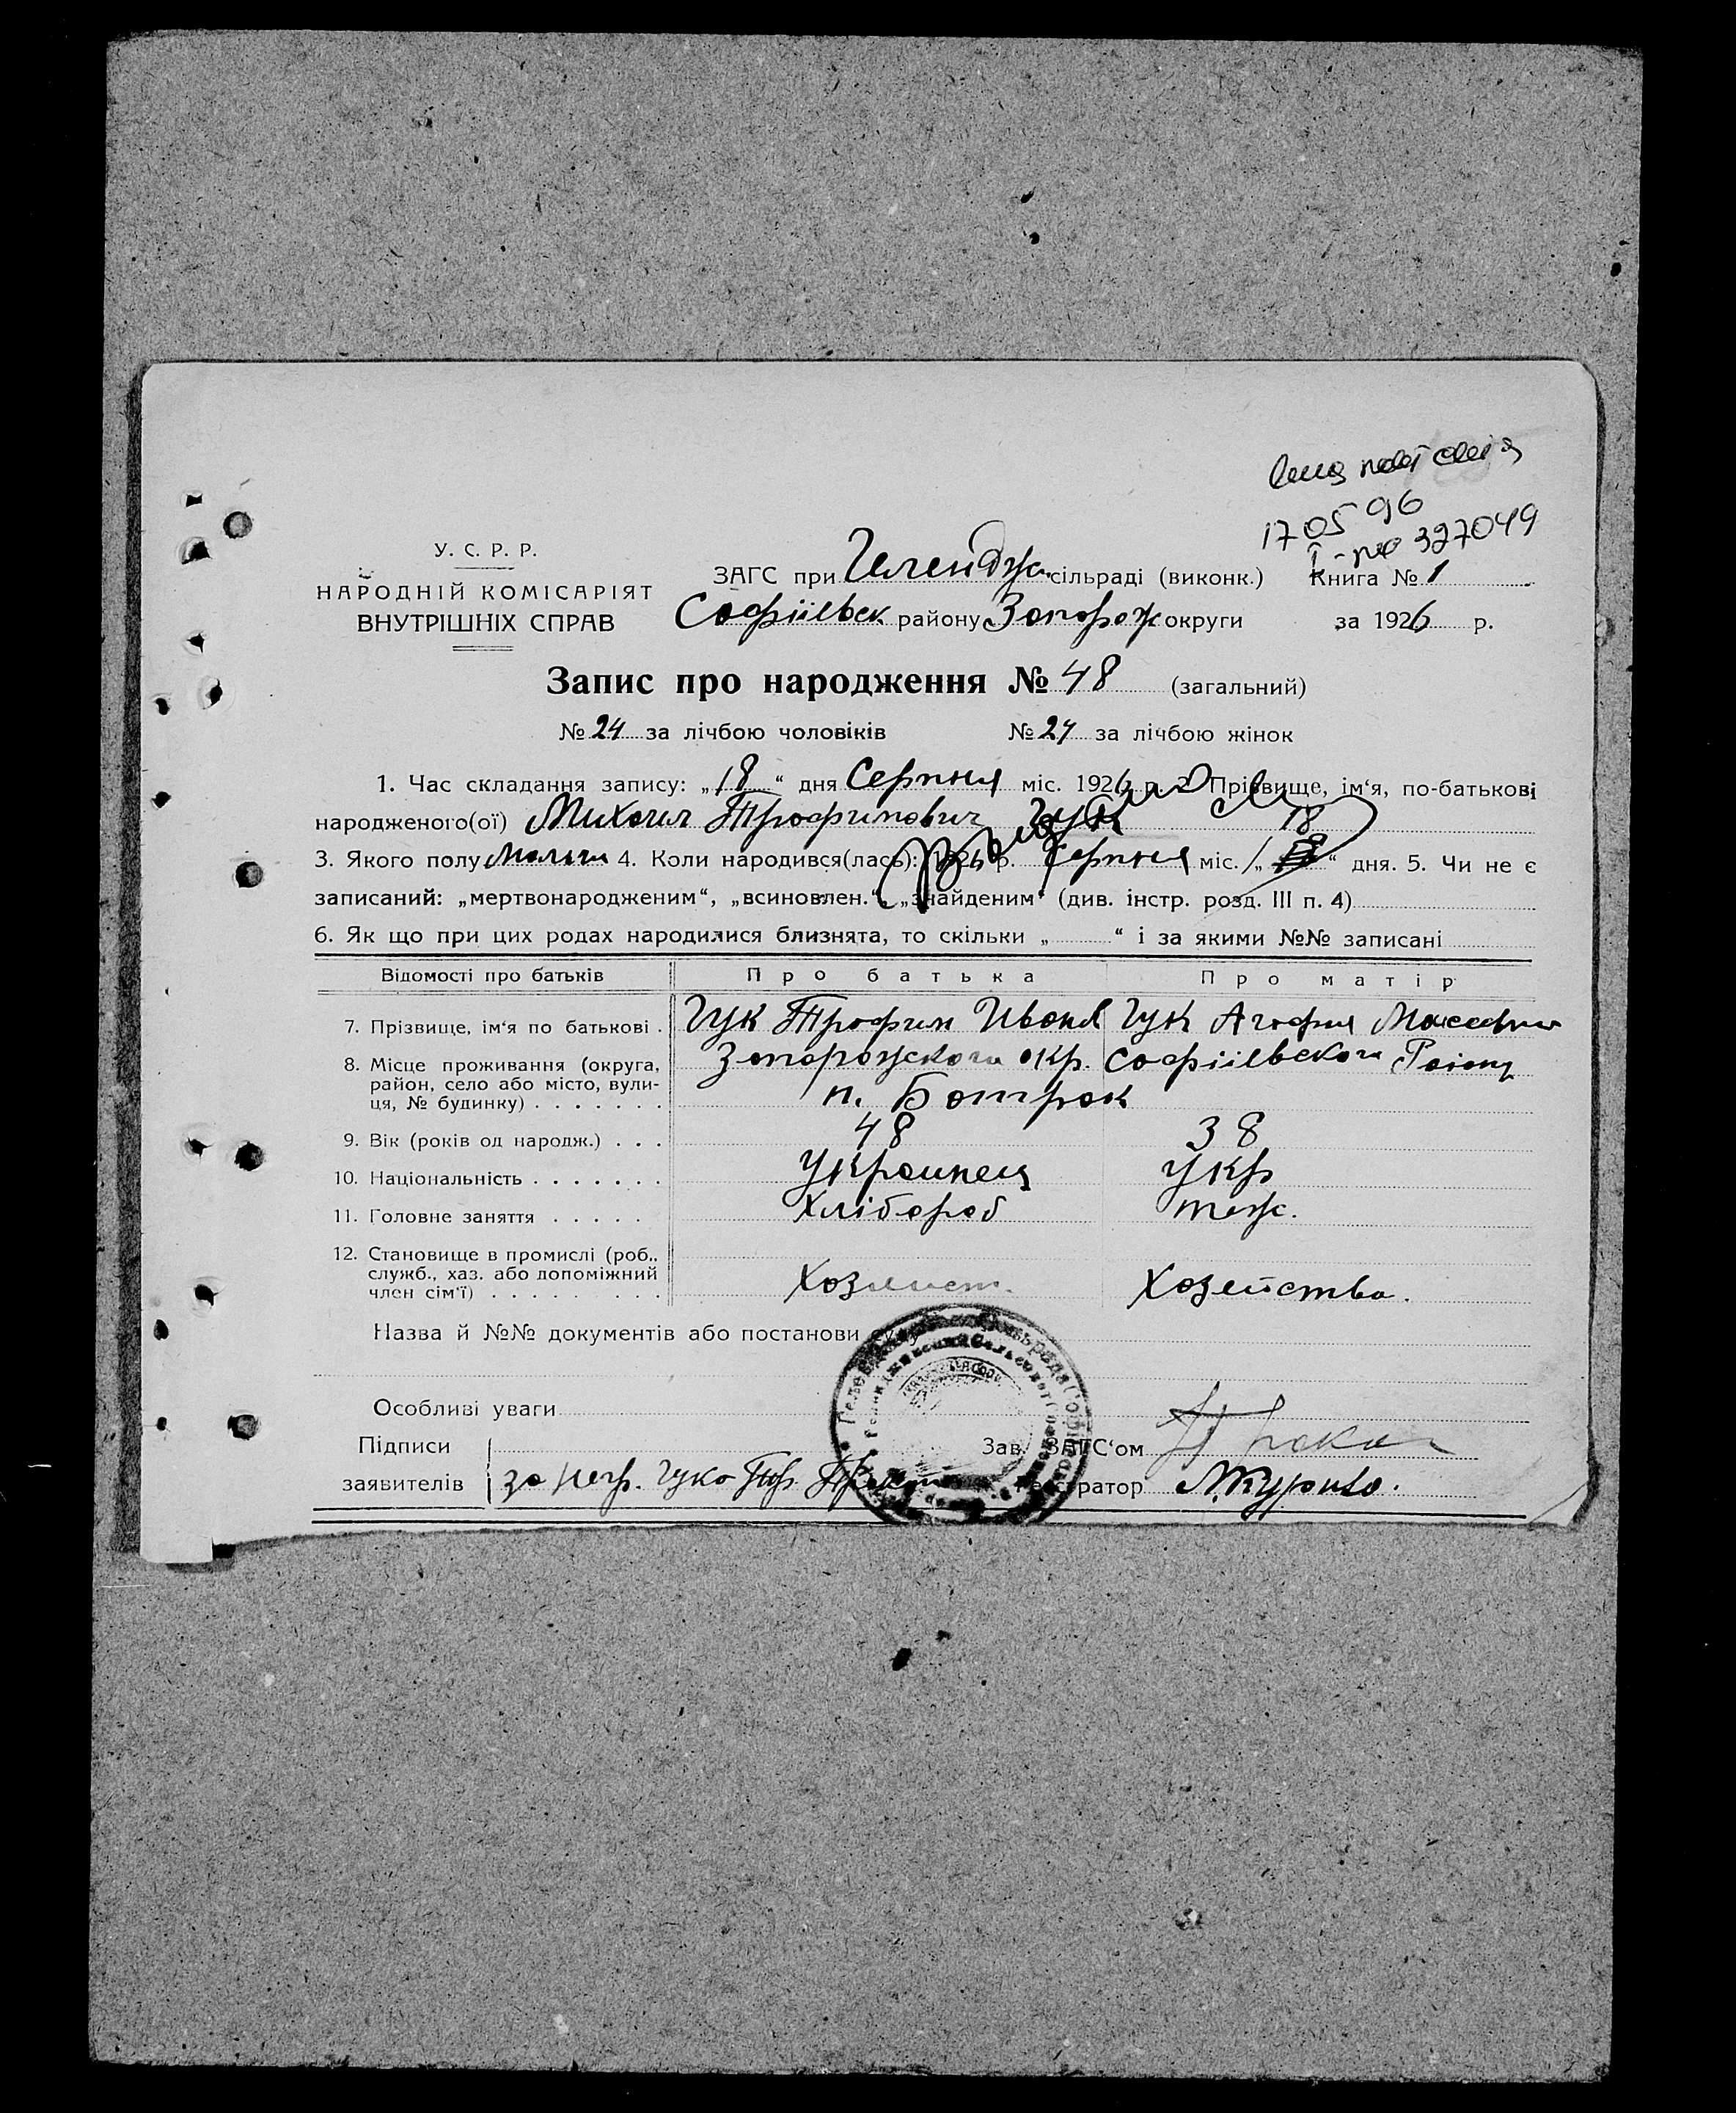 17 05 96
І-ЖС 327049
У. С. Р. Р.
НАРОДНІЙ КОМІСАРІЯТ
ВНУТРІШНІХ СПРАВ
ЗАГС при Геленджи сільраді (виконк.) Книга № 1
Софіієвск району Запорож округи за 1926 р.
Запис про народження № 48 (загальний)
№ 24 за лічбою чоловіків № 24 за лічбою жінок
1. Час складання запису: „18“ дня Серпня міс. 1926 р. 2. Прізвище, ім‘я, по-батькові
народженого(ої) Михаил Трофимович Гук
3. Якого полу 4. Коли народився(лась): 1926 р. Серпня міс. „18“ дня. 5. Чи не є
записаний: „мертвонародженим“, „всиновлен.“, „знайденим“ (див. інстр. розд. III п. 4)
6. Як що при цих родах народилися близнята, то скільки „ “ і за якими №№ записані
Відомості про батьків Про батька Про матір
7. Прізвище, ім‘я по батькові . Гук Трофим Иванов Гук Агафия
8. Місце проживання (округа, Запорожского окр. Софіієвского Раіону
район, село або місто, вули-
ця, № будинку) . . . . . . . п. Ботрак
9. Вік (років од народж.) . . . 48 38
10. Національність . . . . . . . Украинец Укр
11. Головне заняття . . . . . Хлібороб тож.
12. Становище в промислі (роб.,
служб., хаз. або допоміжний
член сім‘ї) . . . . . . . . . Хозяист. Хозеиства.
Назва й №№ документів або постанови суду
Особливі уваги
Підписи Зав. ЗАГС‘ом
заявителів за негр. Гука Регістратор